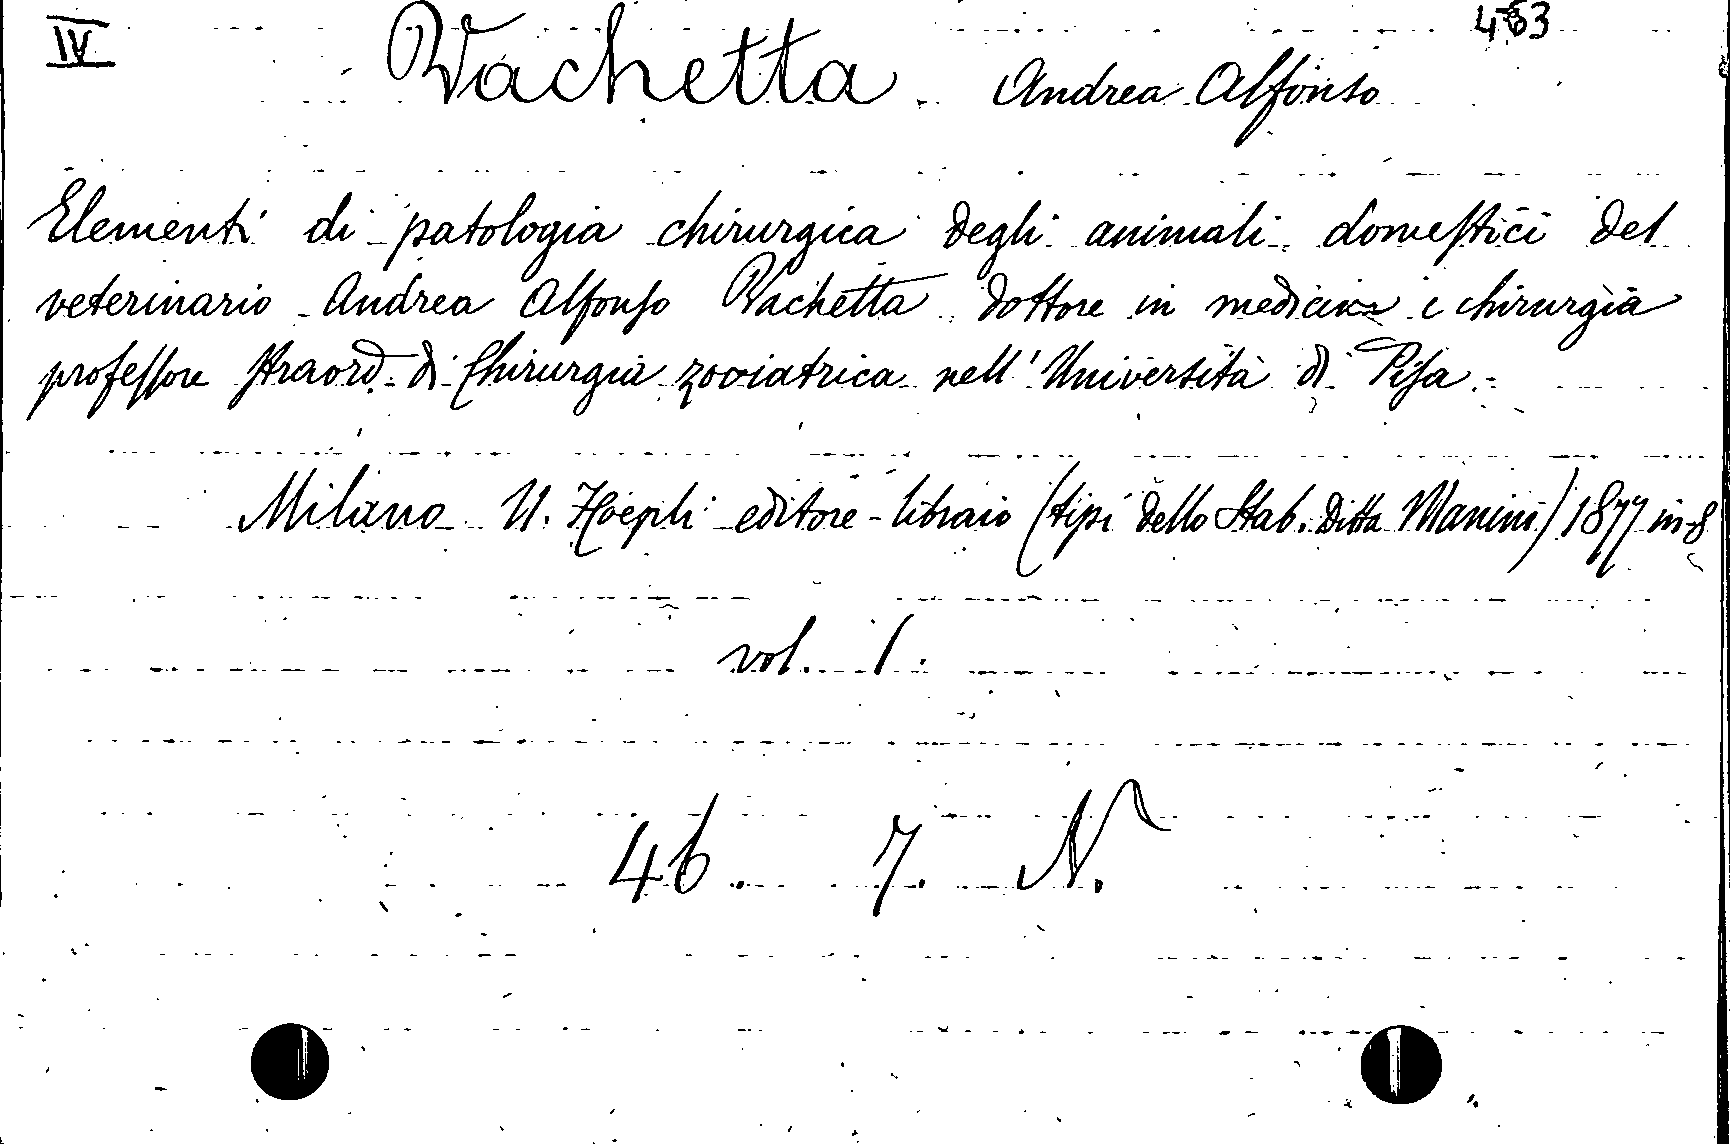 IV Vachetta Andrea Alfonso
Elementi di patologia chirurgica degli animali domestici del
veterinario Andrea Alfonso Vachetta dottore in medicina e chirurgia
professore straord. di Chirurgia zooiatrica nell' Università di Pisa.
Milano U. Hoepli editore-libraio (tipi dello Stab. Ditta Manini) 1877 in-8
vol. 1.
46. 7. N.